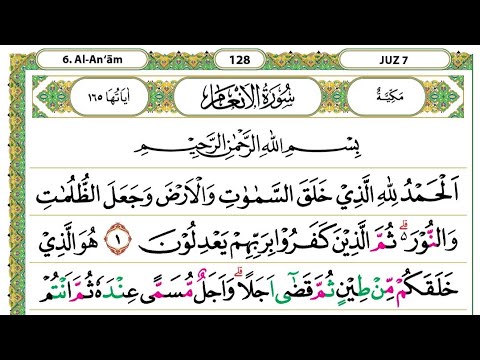 6. Al-An‘ām 128 JUZ 7
مَكِيَّةٌ سُوْرَةُ الْاَنْعَام اٰيَاتُهَا ١٦٥
بِسْمِ اللّٰهِ الرَّحْمٰنِ الرَّحِيْمِ
اَلْحَمْدُ لِلّٰهِ الَّذِيْ خَلَقَ السَّمٰوٰتِ وَالْاَرْضَ وَجَعَلَ الظُّلُمٰتِ
وَالنُّوْرَ ەۗ ثُمَّ الَّذِيْنَ كَفَرُوْا بِرَبِّهِمْ يَعْدِلُوْنَ ١ هُوَ الَّذِيْ
خَلَقَكُمْ مِّنْ طِيْنٍ ثُمَّ قَضٰٓى اَجَلًا ۗوَاَجَلٌ مُّسَمًّى عِنْدَهٗ ثُمَّ اَنْتُمْ